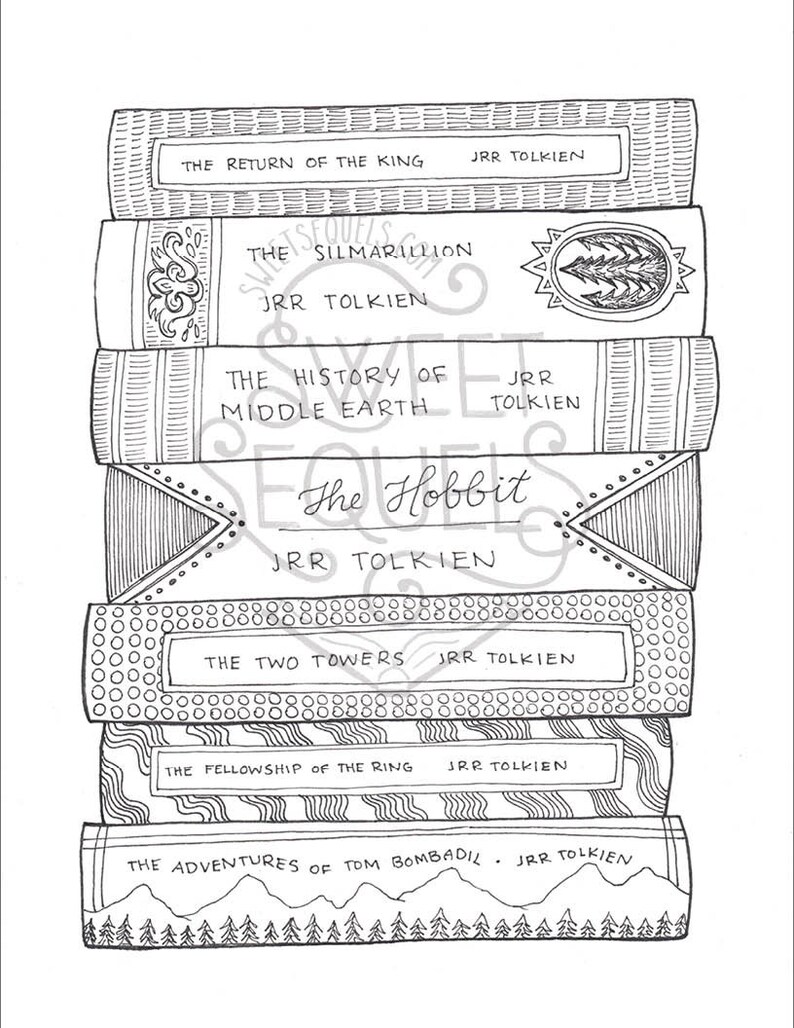 THE RETURN OF THE KING JRR TOLKIEN
SWEETSEQUELS.COM
THE SILMARILLION
JRR TOLKIEN
SWEET
THE HISTORY OF JRR
MIDDLE EARTH TOLKIEN
SEQUELS
The Hobbit
JRR TOLKIEN
THE TWO TOWERS JRR TOLKIEN
THE FELLOWSHIP OF THE RING JRR TOLKIEN
THE ADVENTURES OF TOM BOMBADIL · JRR TOLKIEN